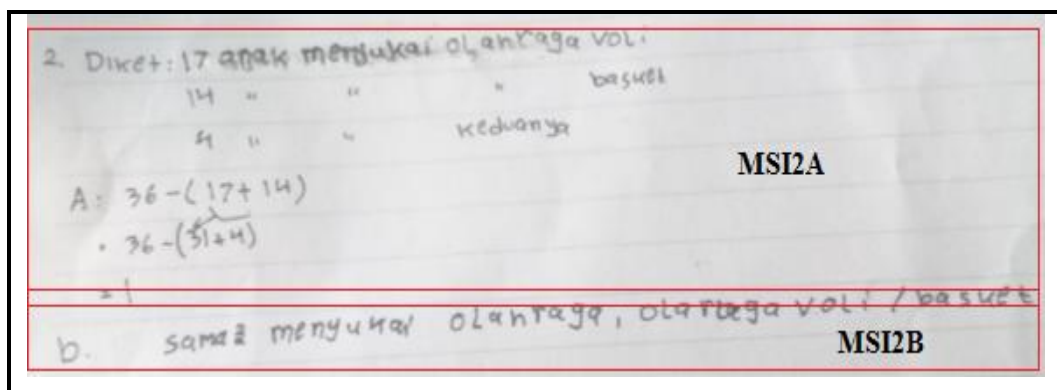 2. Diket: 17 anak menyukai olahraga voli
14 " " " basket
4 " " keduanya
MSI2A
A: 36-(17+14)
• 36-(31+4)
= 1
b. sama2 menyukai olahraga, olahraga voli / basket
MSI2B